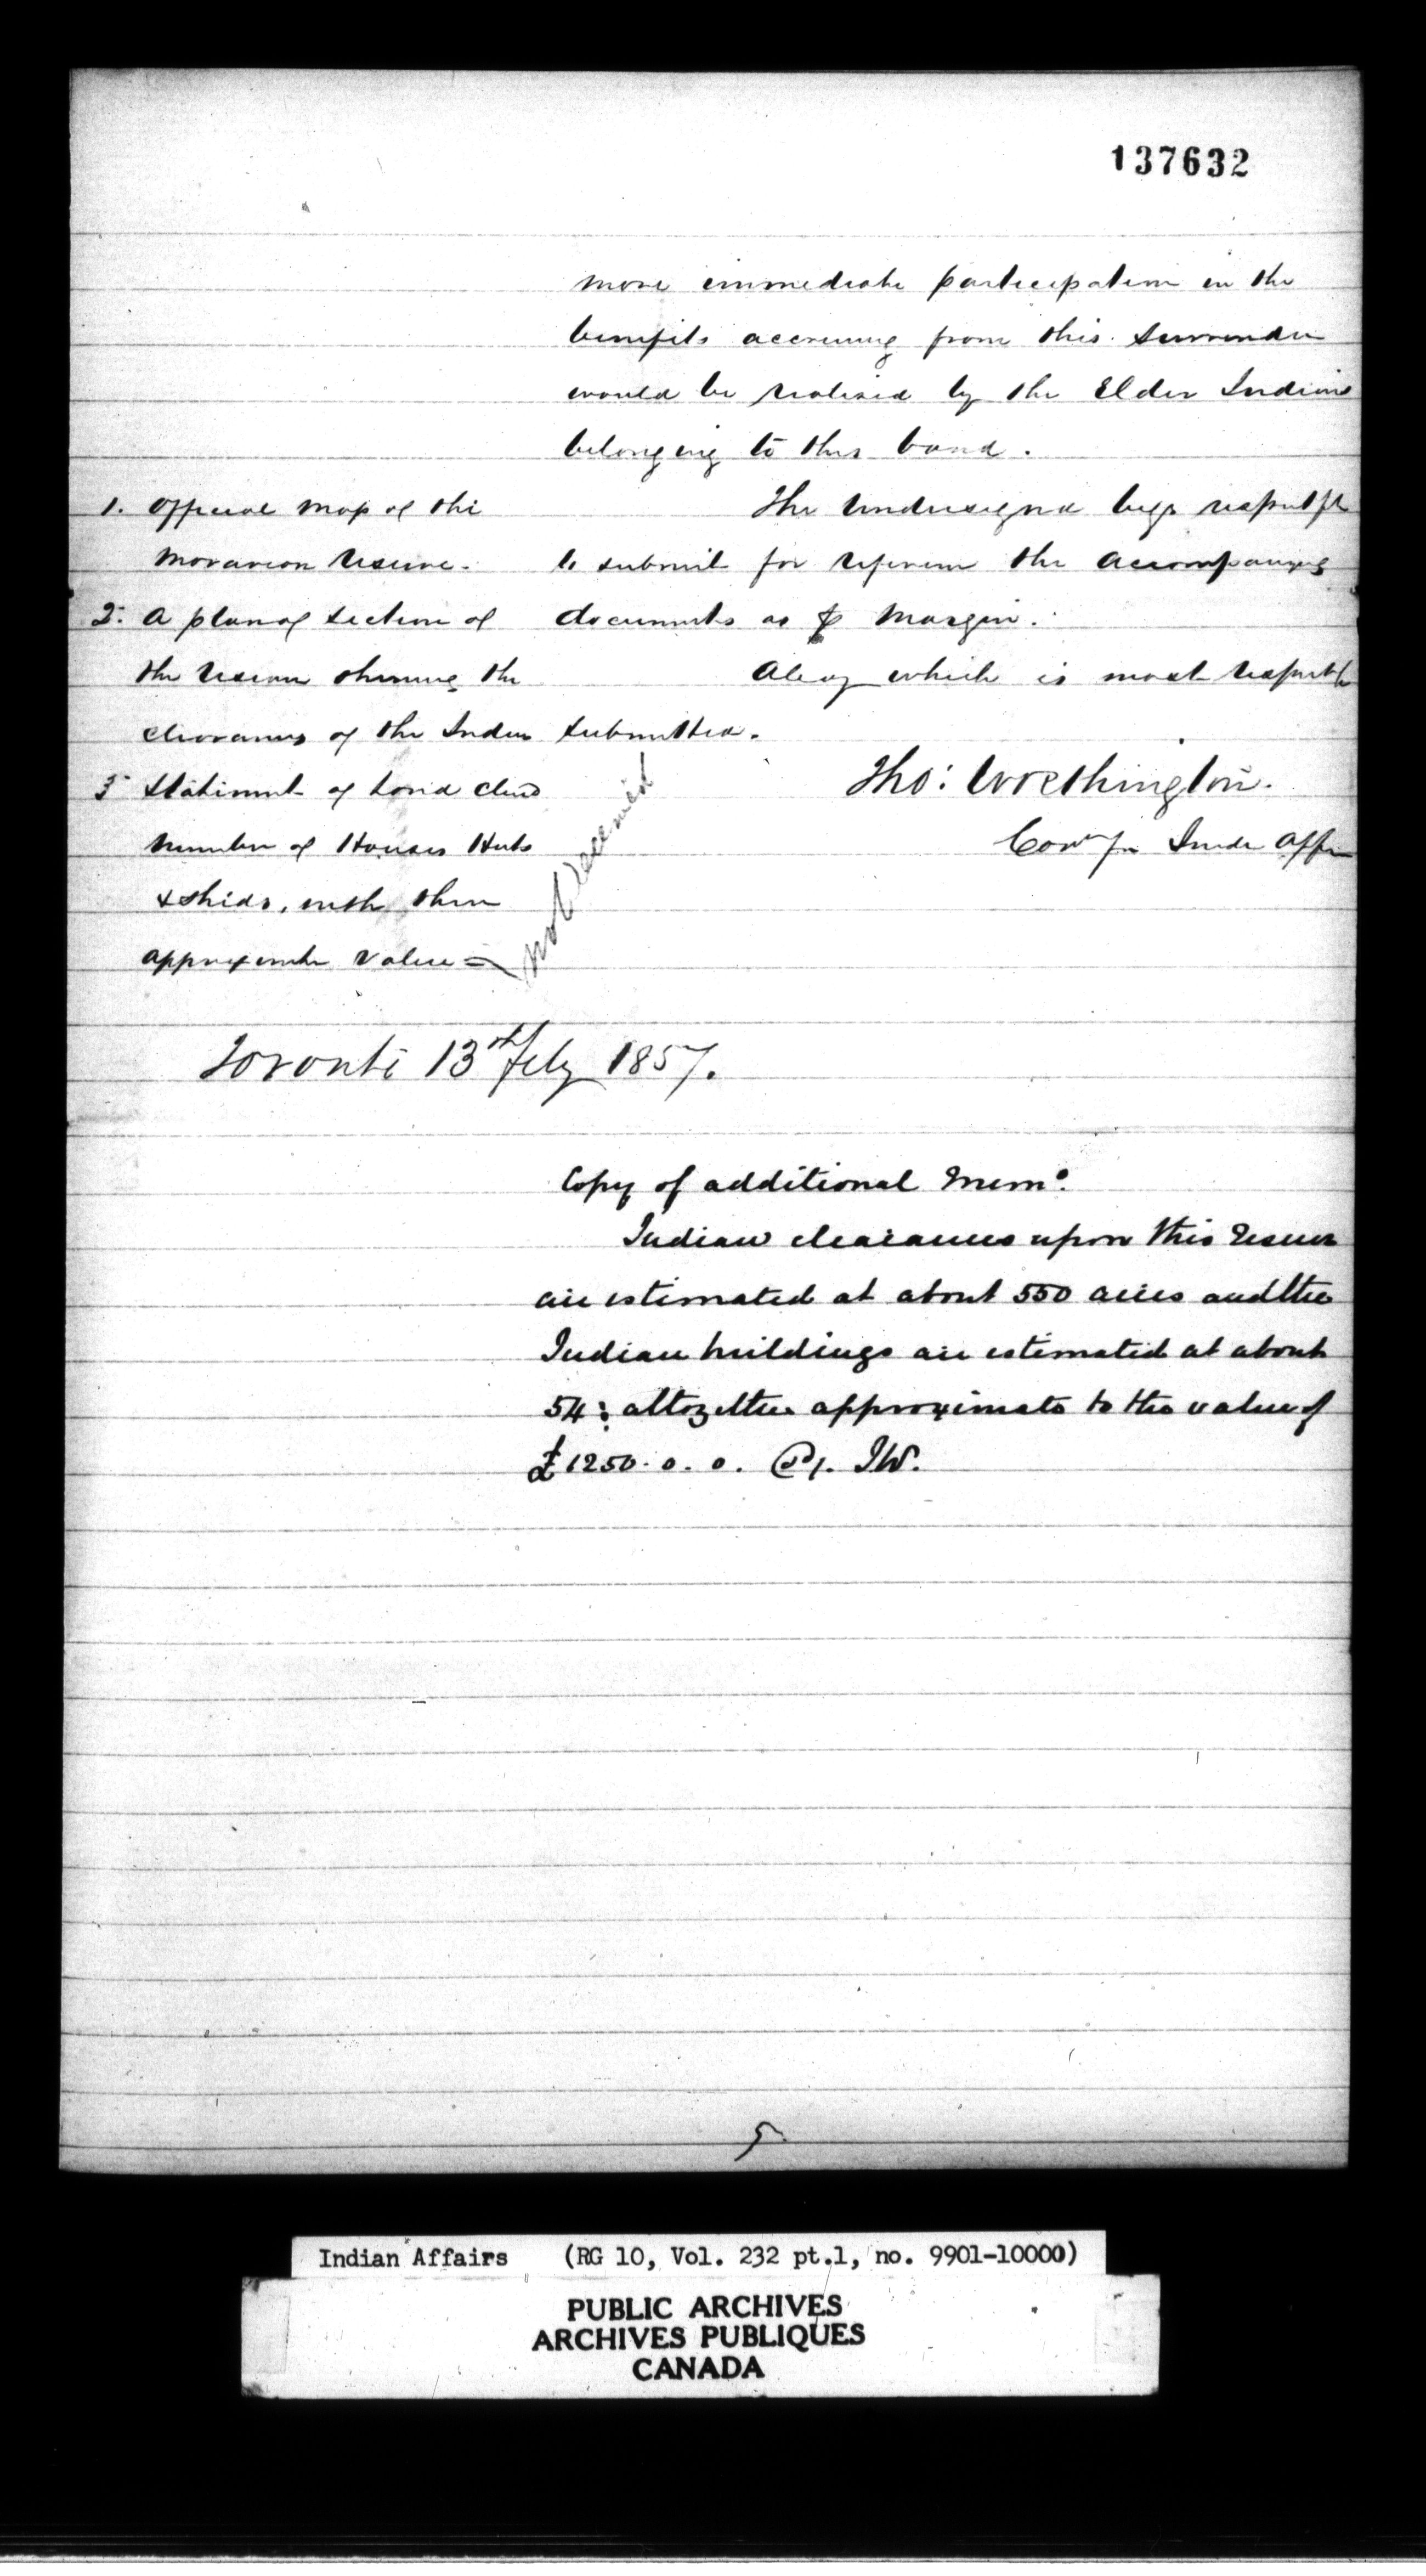 137632
more immediate participation in the
benefits accruing from this surrender
would be realised by the Elder Indians
belonging to this band.
The Undersigned begs respectfl
to submit for reference the accompanying
documents as ⅌ Margin.
All of which is most respectf
submitted.
1. Official Map of the
Moravian Reserve.
2. A plan of section of
the reserve shewing the
clearances of the Indian
3 Statement of Land clrd
number of Houses Huts
& sheds, with their
approximate value =
not received
Tho: Worthington.
Comr for Indn Affrs
Toronto 13th Feby 1857.
Copy of additional Memo.
Indian clearances upon this Reserve
are estimated at about 550 acres and the
Indian buildings are estimated at about
54: altogether approximate to the value of
£1250. 0. 0. T.W.
5
Indian Affairs (RG 10, Vol. 232 pt.1, no. 9901-10000)
PUBLIC ARCHIVES
ARCHIVES PUBLIQUES
CANADA